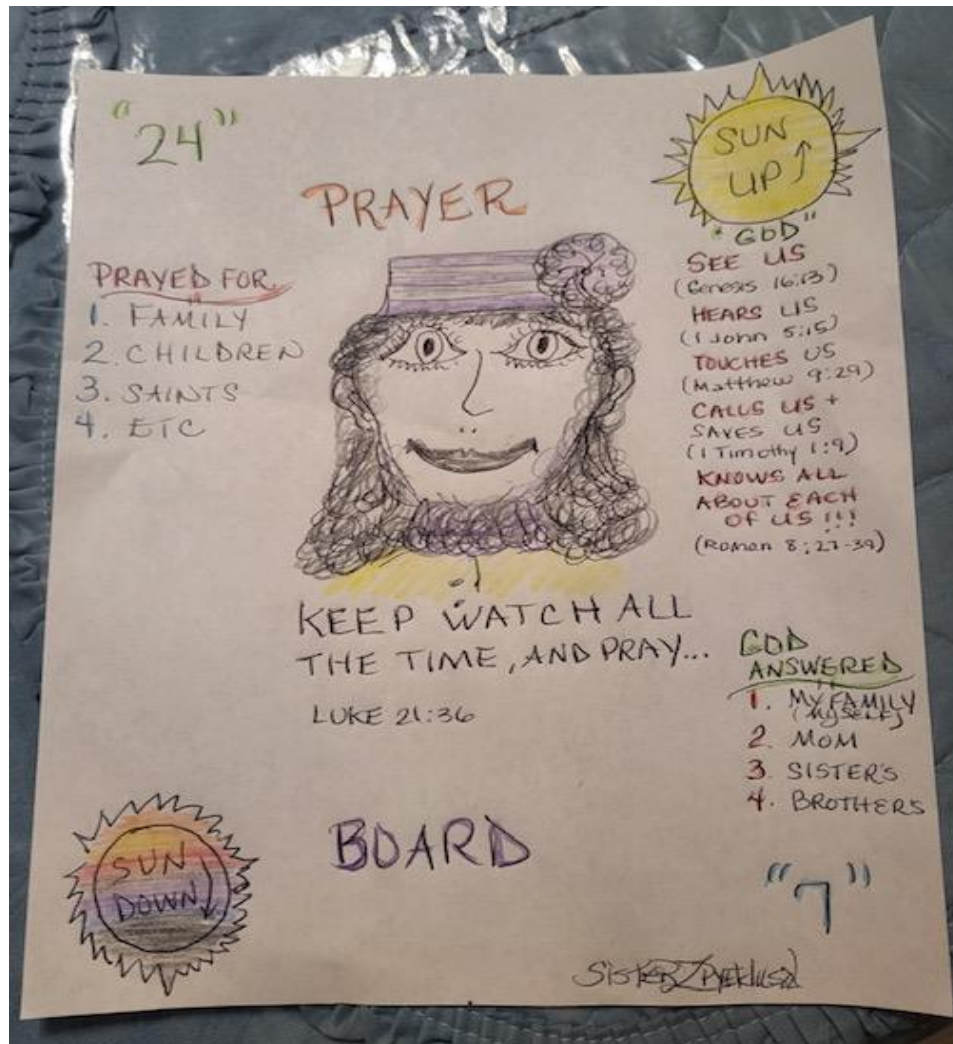 "24"
PRAYER
SUN
UP
PRAYED FOR
1. FAMILY
2. CHILDREN
3. SAINTS
4. ETC
"GOD"
SEE US
(Genesis 16:13)
HEARS US
(1 John 5:15)
TOUCHES US
(Matthew 9:29)
CALLS US +
SAVES US
(1 Timothy 1:9)
KNOWS ALL
ABOUT EACH
OF US!!!
(Roman 8:27-39)
KEEP WATCH ALL
THE TIME, AND PRAY...
LUKE 21:36
GOD
ANSWERED
1. MY FAMILY
(MYSELF)
2. MOM
3. SISTER'S
4. BROTHERS
SUN
DOWN
BOARD
"7"
SISTER